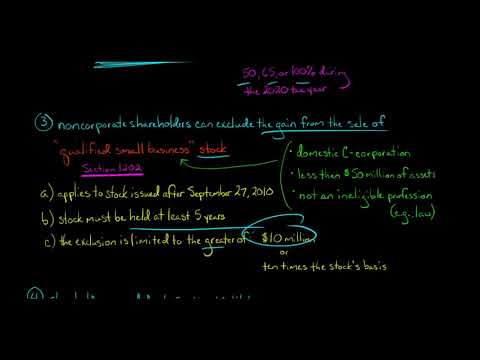 50, 65, or 100% during
the 2020 tax year
③ noncorporate shareholders can exclude the gain from the sale of
"qualified small business" stock
Section 1202
• domestic C-corporation
• less than $50 million of assets
• not an ineligible profession
(e.g., law)
a) applies to stock issued after September 27, 2010
b) stock must be held at least 5 years
c) the exclusion is limited to the greater of $10 million
or
ten times the stock's basis